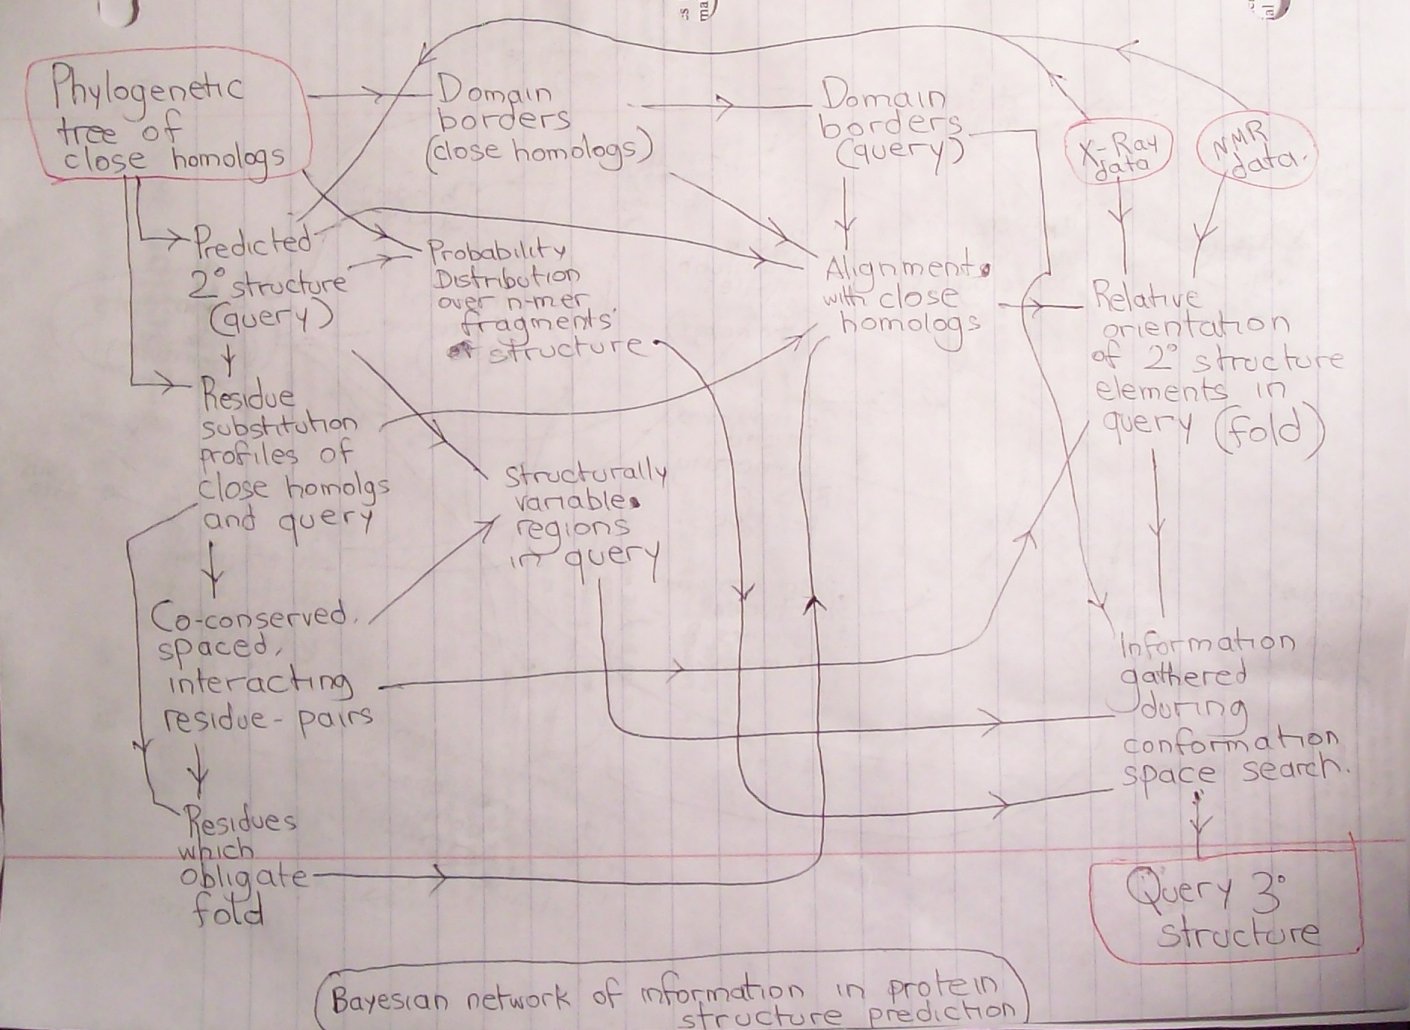 Phylogenetic
tree of
close homologs
Domain
borders
(close homologs)
Domain
borders
(query)
X-Ray
data
NMR
data.
Predicted
2° structure
(query)
Probability
Distribution
over n-mer
fragments
of structure
Alignment
with close
homologs
Relative
orientation
of 2° structure
elements in
query (fold)
Residue
substitution
profiles of
close homolgs
and query
Structurally
variable
regions
in query
Co-conserved,
spaced,
interacting
residue-pairs
Information
gathered
during
conformation
space search.
Residues
which
obligate
fold
Query 3°
structure
Bayesian network of information in protein
structure prediction